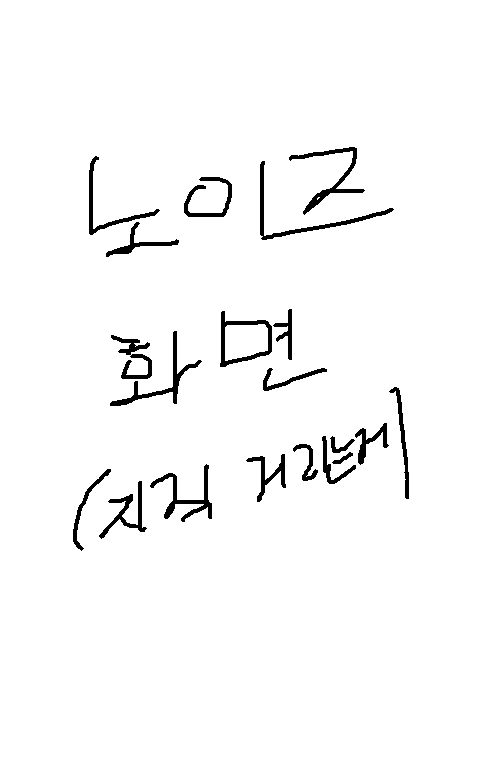 노이즈
화면
(지직 거리는거)